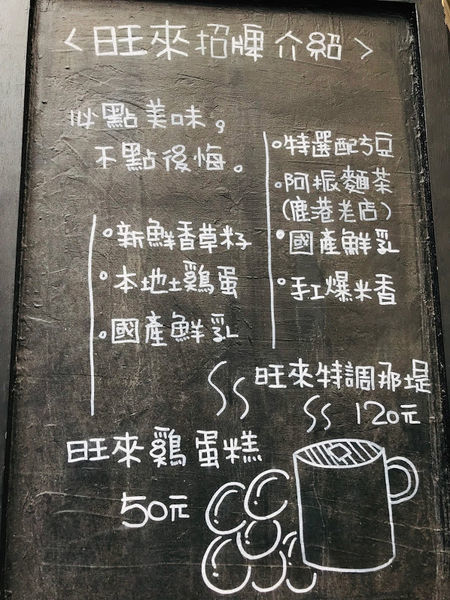 <旺來招牌介紹>
必點美味。
不點後悔。
•特選配方豆
•阿振麵茶
(鹿港老店)
•國產鮮乳
•手工爆米香
旺來特調那堤
120元
•新鮮香草籽
•本地土鷄蛋
•國產鮮乳
旺來鷄蛋糕
50元